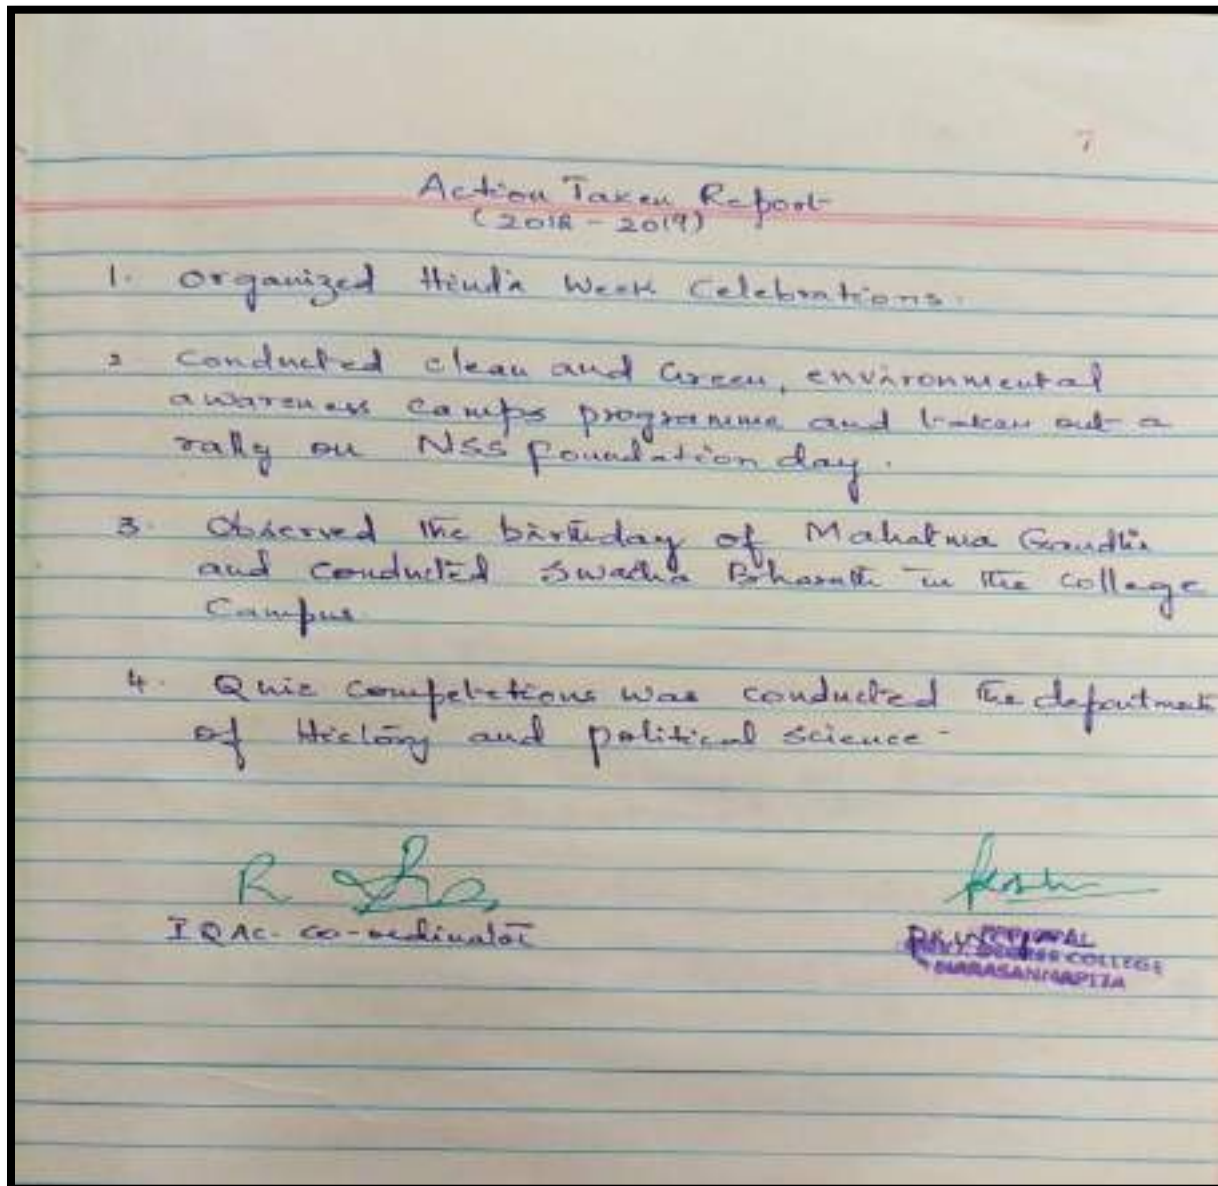 7
Action Taken Report
(2018 - 2019)
1. Organized Hindi Week Celebrations.
2 Conducted clean and Green, environmental
awareness camps programme and taken out a
rally on NSS foundation day.
3. Observed the birthday of Mahatma Gandhi
and conducted Swacha Bharath in the college
Campus
4. Quiz competetions was conducted the department
of History and political science -
R
IQAC. co-ordinator
PRINCIPAL
DEGREE COLLEGE
NARASANNAPETA